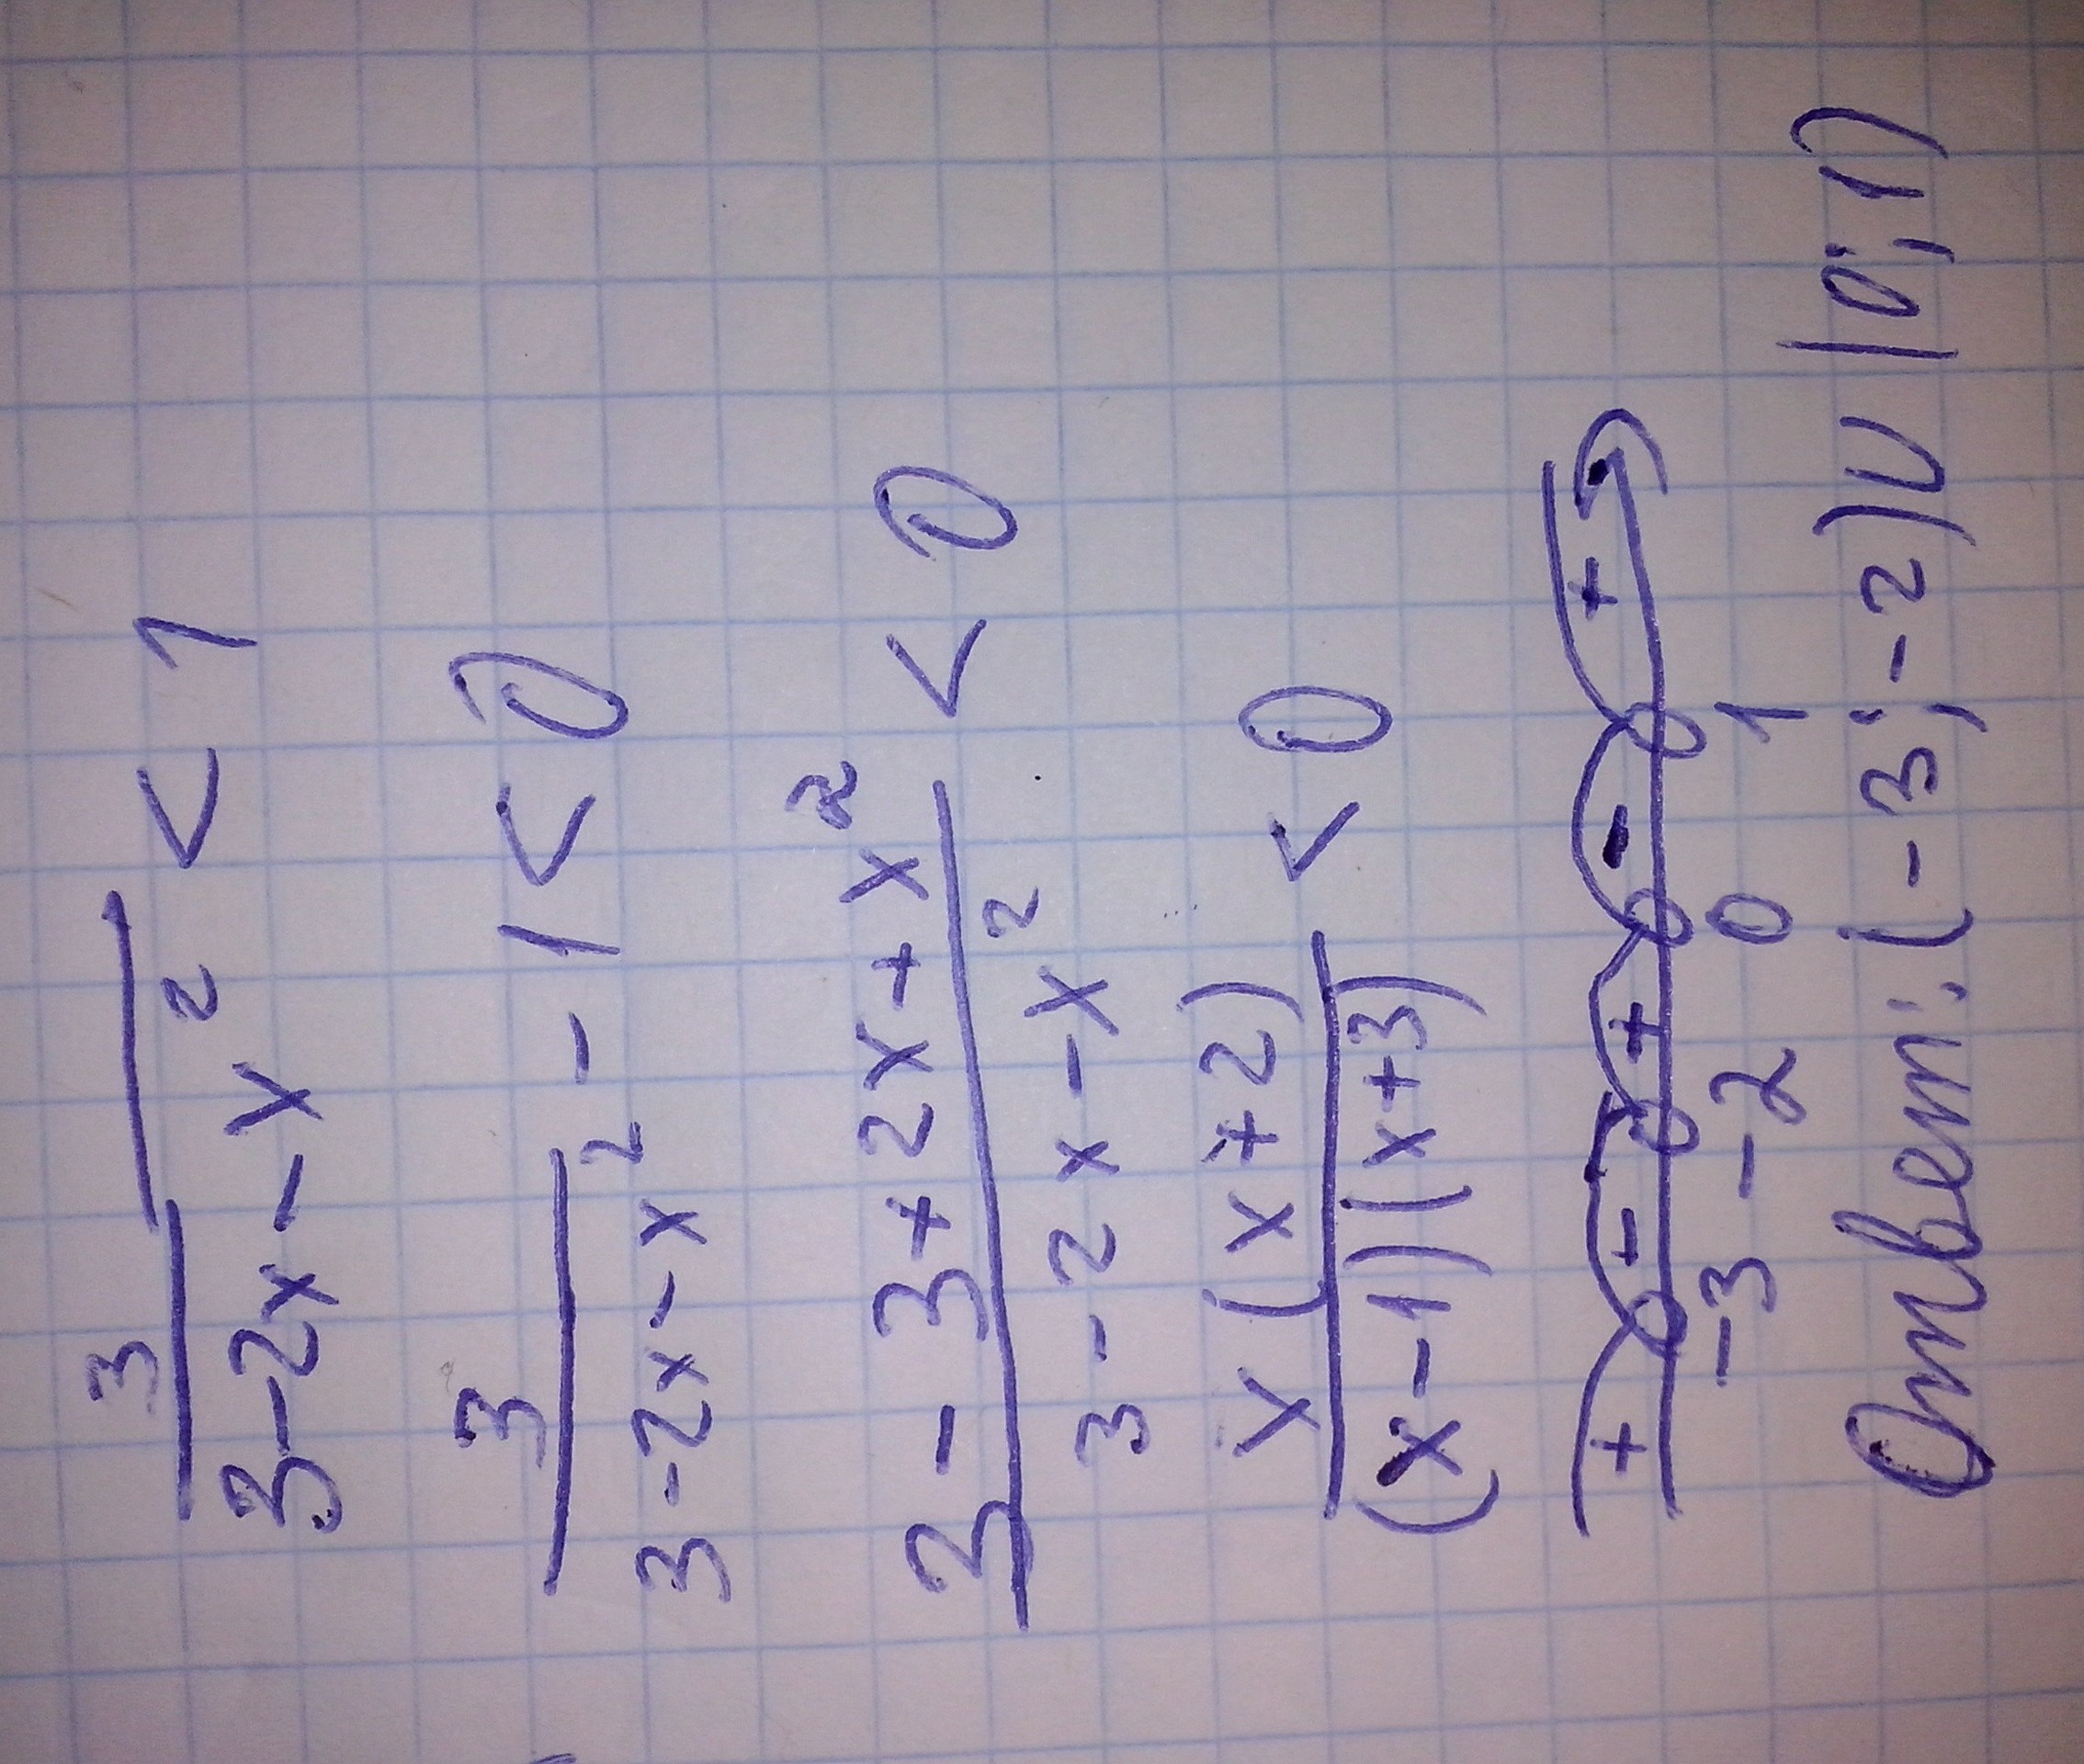 3
3-2x-x² < 1
3
3-2x-x² - 1 < 0
3 - 3 + 2x + x² < 0
3 - 2x - x²
x(x+2) < 0
(x-1)(x+3)
+ - + - +
-3 -2 0 1
Ответ: (-3; -2) U (0; 1)